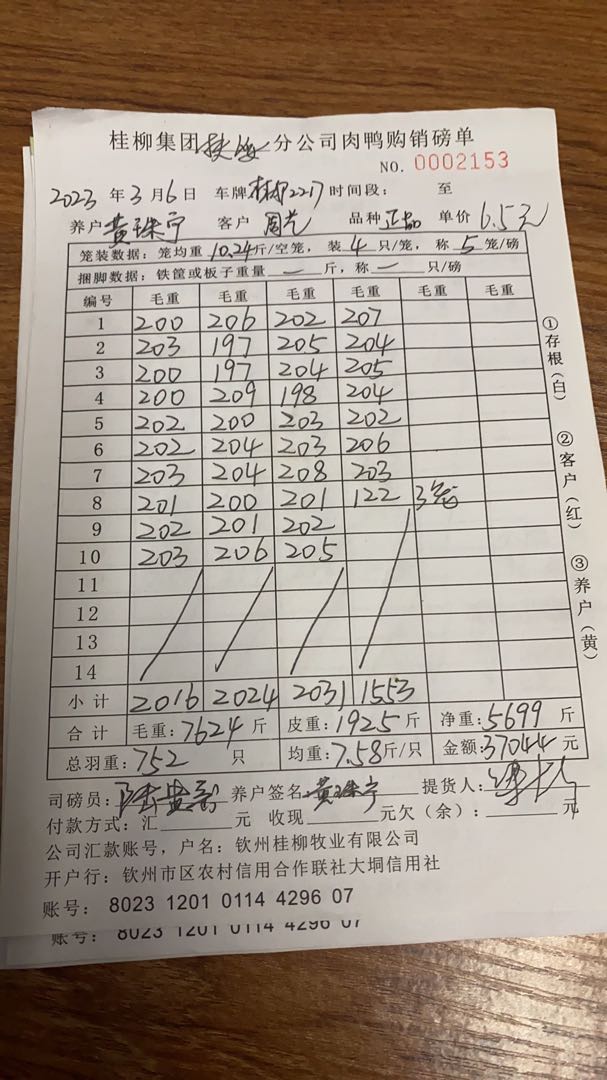 桂柳集团扶绥分公司肉鸭购销磅单
NO. 0002153
2023 年 3 月 6 日 车牌 桂 2217 时间段： 至
养户 黄珠宁 客户 周光 品种 正品 单价 6.5元
笼装数据：笼均重 10.24 斤/空笼，装 4 只/笼，称 5 笼/磅
捆脚数据：铁筐或板子重量 — 斤，称 — 只/磅
编号 毛重 毛重 毛重 毛重 毛重 毛重
1 200 206 202 207
2 203 197 205 204
3 200 197 204 205
4 200 209 198 204
5 202 200 203 202
6 202 204 203 206
7 203 204 208 203
8 201 200 201 122 3笼
9 202 201 202
10 203 206 205
11
12
13
14
小计 2016 2024 2031 1553
合计 毛重：7624 斤 皮重：1925 斤 净重：5699 斤
总羽重：752 只 均重：7.58 斤/只 金额：37044 元
司磅员： 养户签名 黄珠宁 提货人：
付款方式：汇 元 收现 元欠（余）： 元
公司汇款账号，户名：钦州桂柳牧业有限公司
开户行：钦州市区农村信用合作联社大垌信用社
账号： 8023 1201 0114 4296 07
账号： 8023 1201 0114 4296 07
①存根（白）
②客户（红）
③养户（黄）